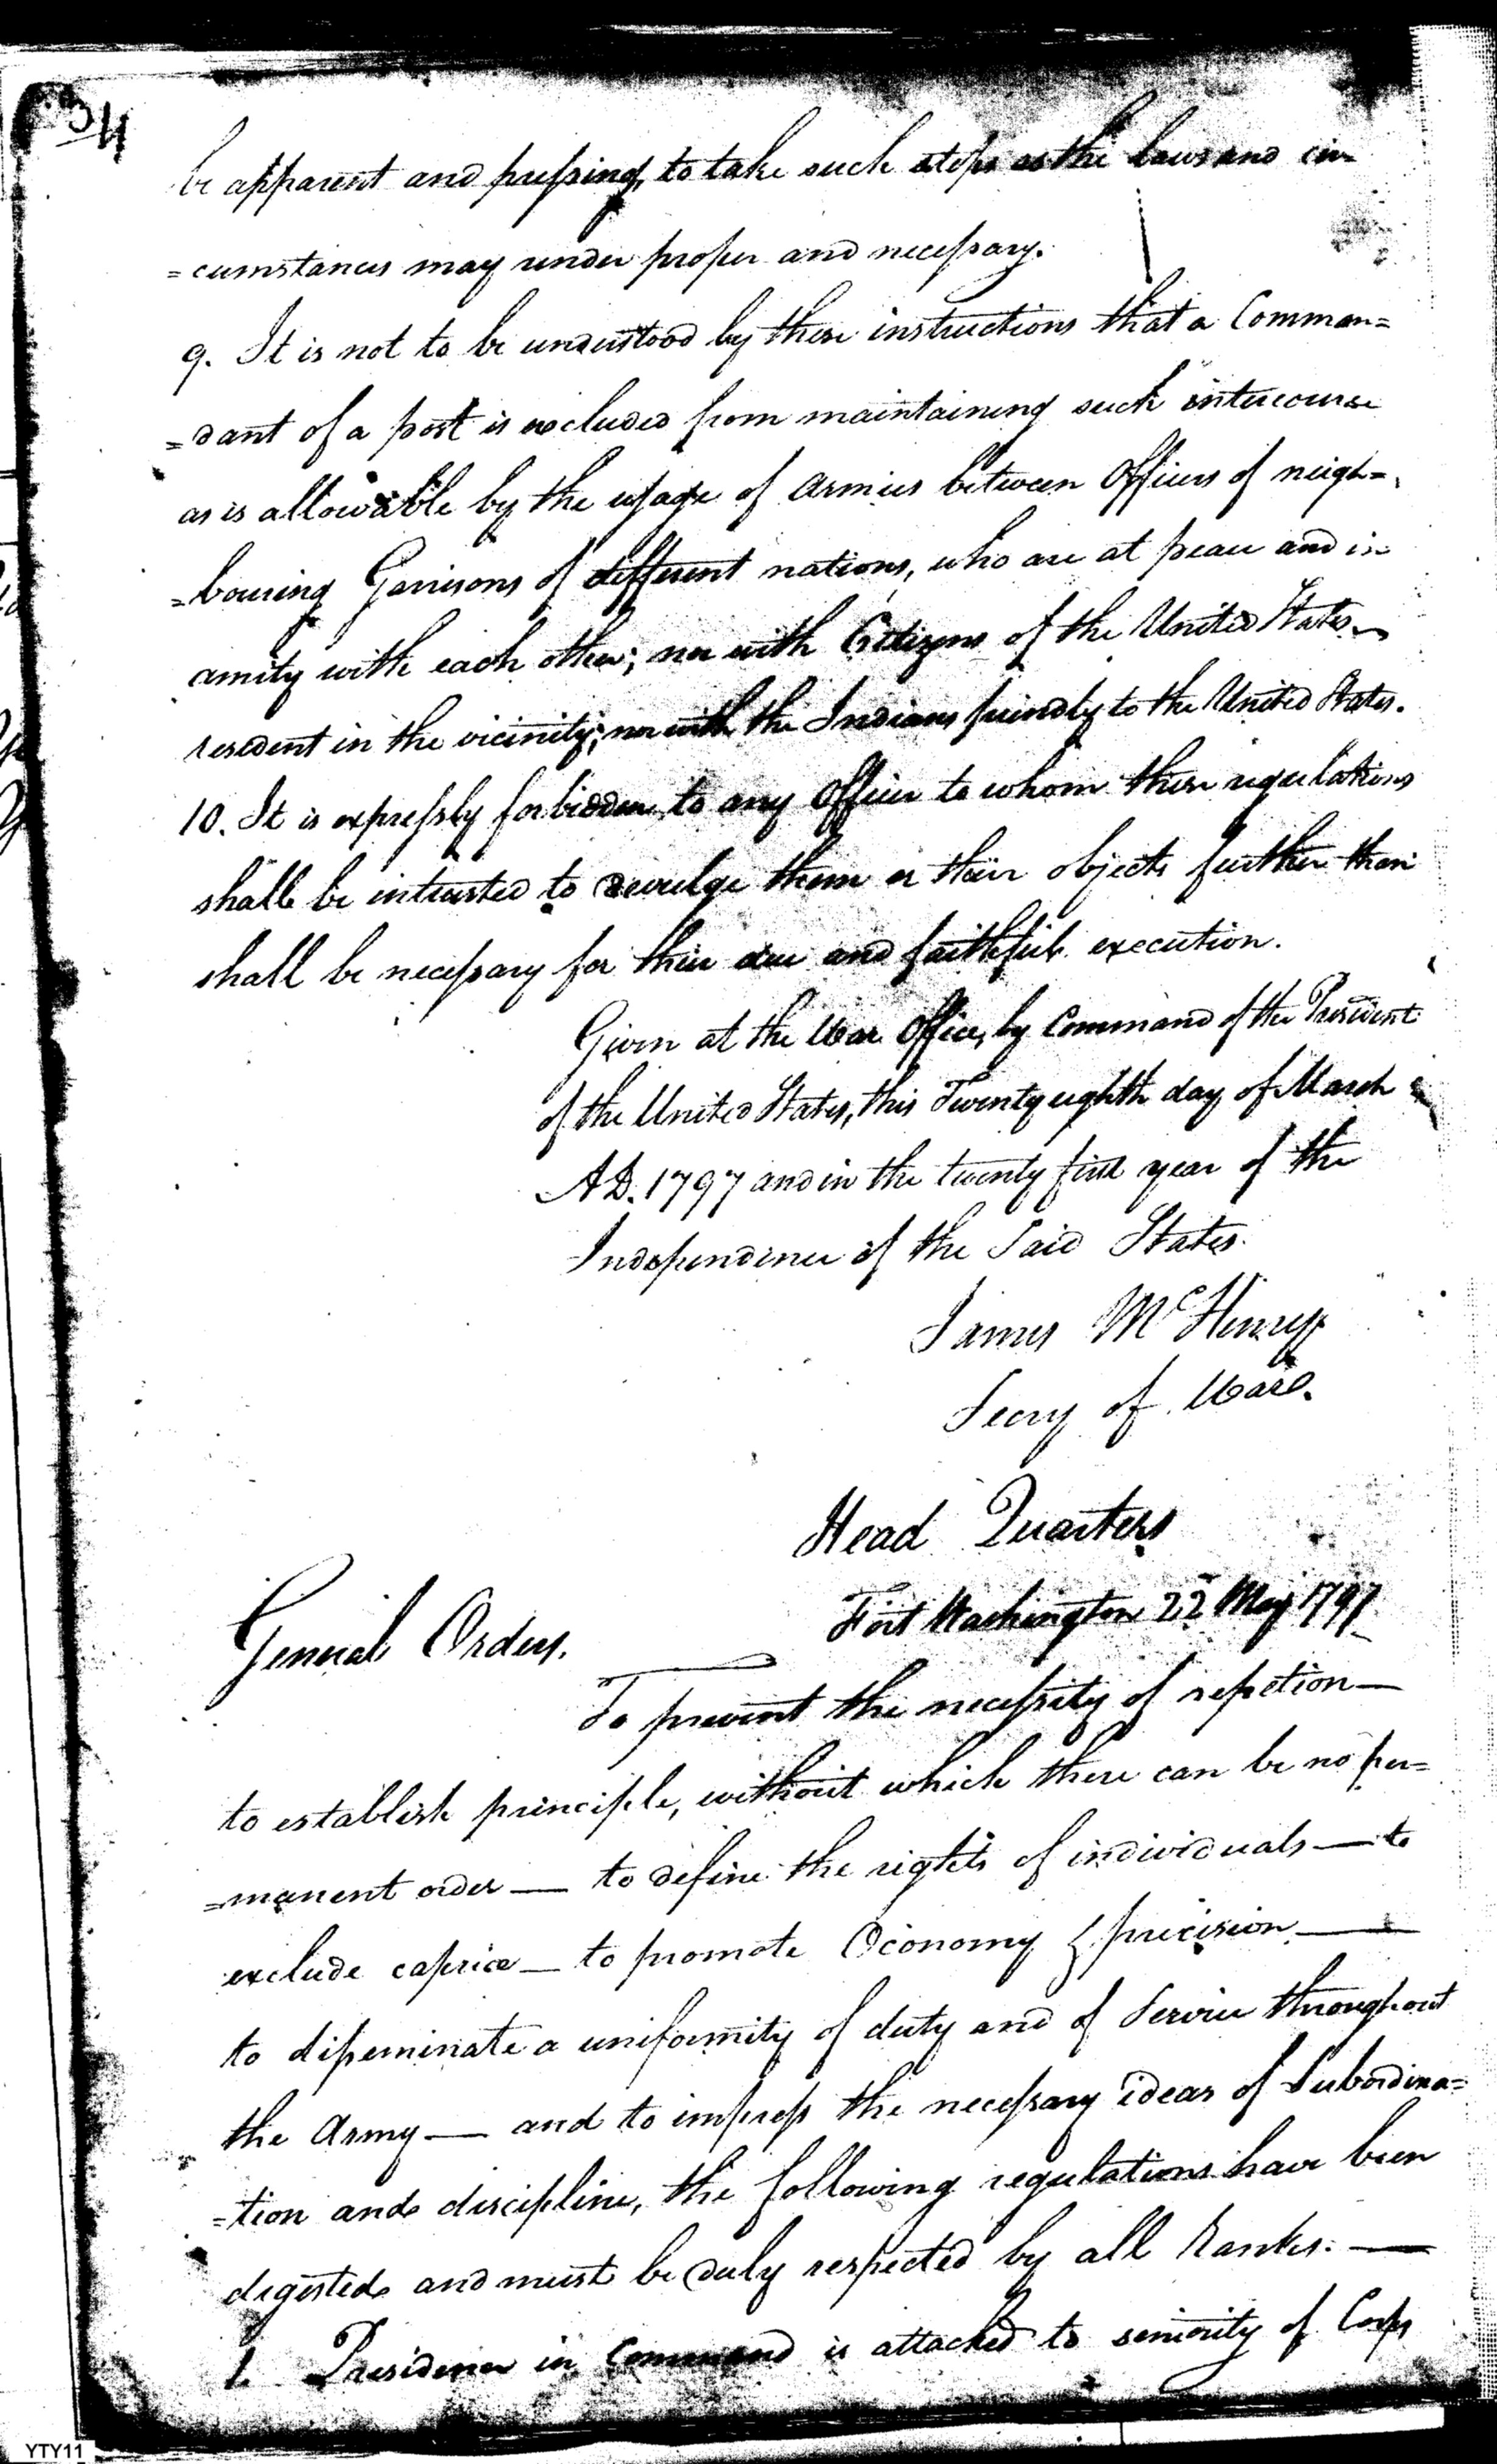 34
be apparent and pressing, to take such steps as the laws and cir
=cumstances may render proper and necessary.
9. It is not to be understood by these instructions that a Comman=
=dant of a post is excluded from maintaining such intercourse
as is allowable by the usage of armies between Officers of neigh=
=bouring Garrisons of different nations, who are at peace and in
amity with each other; nor with Citizens of the United States
resident in the vicinity; nor with the Indians friendly to the United States.
10. It is expressly forbidden to any Officer to whom these regulations
shall be intrusted to devulge them or their objects further than
shall be necessary for their due and faithful execution.
Given at the War Office, by Command of the President
of the United States, this Twenty eighth day of March
A.D. 1797 and in the twenty first year of the
Independence of the Said States.
James McHenry
Secry of War.
Head Quarters
Fort Washington 22 May 1797
General Orders.
To prevent the necessity of repetion—
to establish principle, without which there can be no per=
=manent order — to define the rights of individuals — to
exclude caprice — to promote Oconomy & precision —
to disseminate a uniformity of duty and of Service throughout
the Army — and to impress the necessary ideas of Subordina=
=tion and discipline, the following regulations have been
digested and must be duly respected by all Ranks. —
1. Presidence in Command is attached to seniority of Corps
YTY11